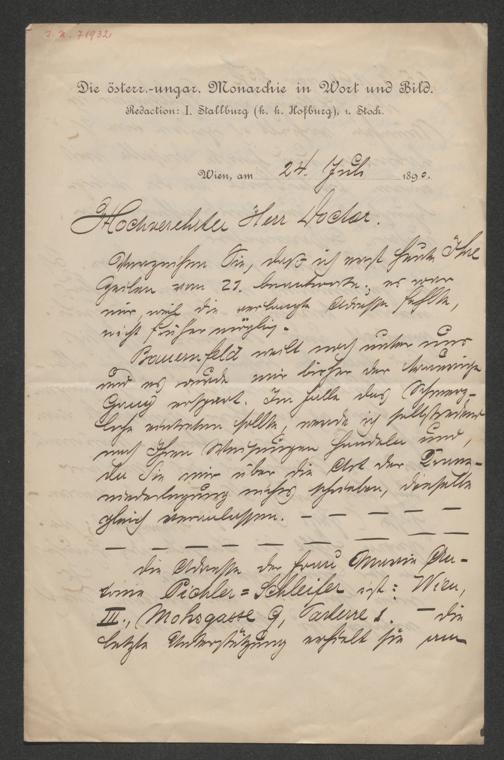 I. N. 71932
Die österr.-ungar. Monarchie in Wort und Bild.
Redaction: I. Stallburg (k. k. Hofburg), 1. Stock.
Wien, am 24. Juli 1890.
Hochverehrter Herr Doctor.
Verzeihen Sie, daß ich erst heute Ihre
Zeilen vom 21. beantworte; es war
mir, weil die verlangte Adresse fehlte,
nicht früher möglich.
Bauernfeld weilt noch unter uns
und es wurde mir bisher der traurige
Gang erspart. Im Falle das Schmerz-
liche eintreten sollte, werde ich selbstredend
nach Ihren Weisungen handeln und,
da Sie mir über die Art der Kranz-
niederlegung nichts schrieben, dieselbe
gleich veranlassen. — — — — —
— — — — — — — —
Die Adresse der Frau Marie Au-
Pichler-Schleifer ist: Wien,
III., Mohsgasse 9, Parterre 1. — Die
letzte Unterstützung erhielt sie am